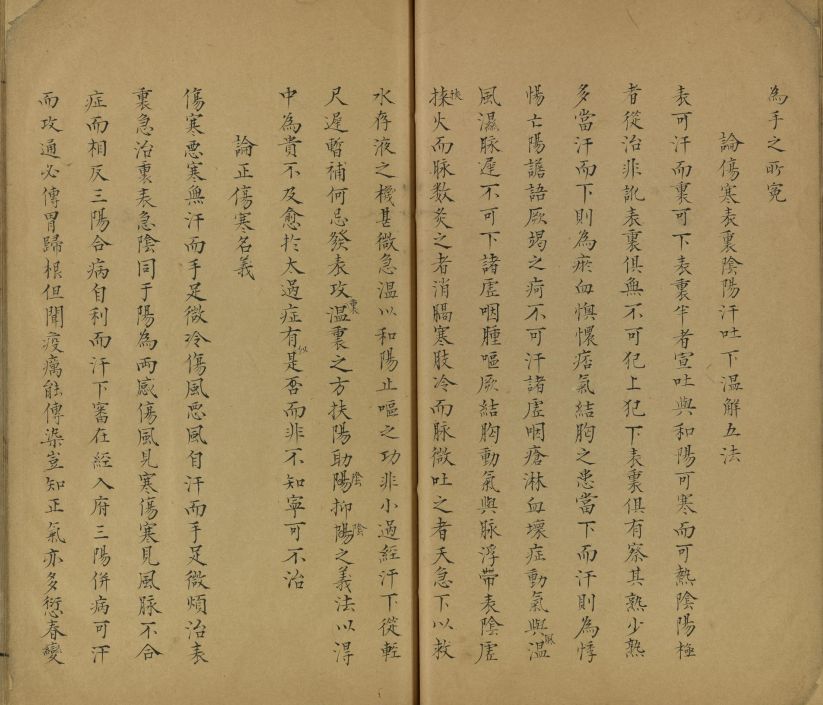 為手之所冤
論傷寒表裏陰陽汗吐下温解五法
表可汗而裏可下表裏半者宣吐與和陽可寒而可熱陰陽極
者從治非訛表裏俱無不可犯上犯下表裏俱有察其熟少熟
多當汗而下則為瘀血懊憹痞氣結胸之患當下而汗則為悸
惕亡陽譫語厥竭之疴不可汗諸虛咽瘡淋血壞症動氣與温
似
風濕脉遲不可下諸虛咽腫嘔厥結胸動氣與脉浮帶表陰虛
挾火而脉数灸之者消膈寒肢冷而脉微吐之者夭急下以救
挾
水存液之機甚微急温以和陽止嘔之功非小過經汗下從輕
尺遲暫補何忌發表攻温裏之方扶陽助陽抑陽之義法以得
裏
陰
陰
中為貴不及愈於太過症有是否而非不知寧可不治
似
論正傷寒名義
傷寒悪寒無汗而手足微冷傷風悪風自汗而手足微煩治表
裏急治裏表急陰同于陽為両感傷風見寒傷寒見風脉不合
症而相反三陽合病自利而汗下審在經入府三陽併病可汗
而攻通必傳胃歸根但聞疫癘能傳染豈知正氣亦多愆春變